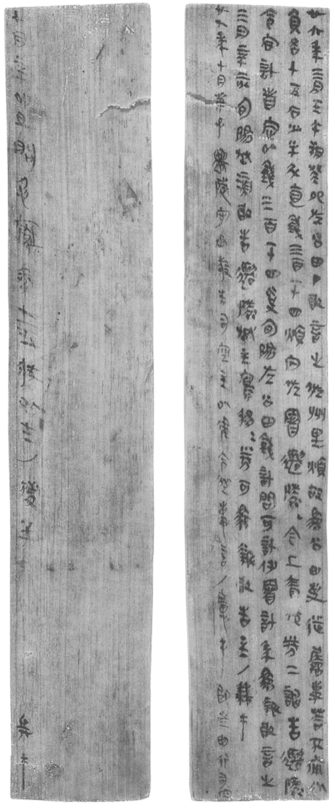 廿六年三月壬午朔癸卯左公田丁敢言之佐州里煩故為公田吏徙屬事荅不備分
負各十五石少半斗直錢三百一十四煩冗佐署遷陵今上責校券二謁告遷陵
令官計者定以錢三百一十四受旬陽左公田錢計問可計付署計年為報敢言之
三月辛亥旬陽丞滂敢告遷陵丞主寫移移券可為報敢告主/兼手
廿七年十月庚子遷陵守丞敬告司空主以律令從事言/手即走申行司空
十月辛卯旦朐忍索秦士五狀以來/慶半 兵手